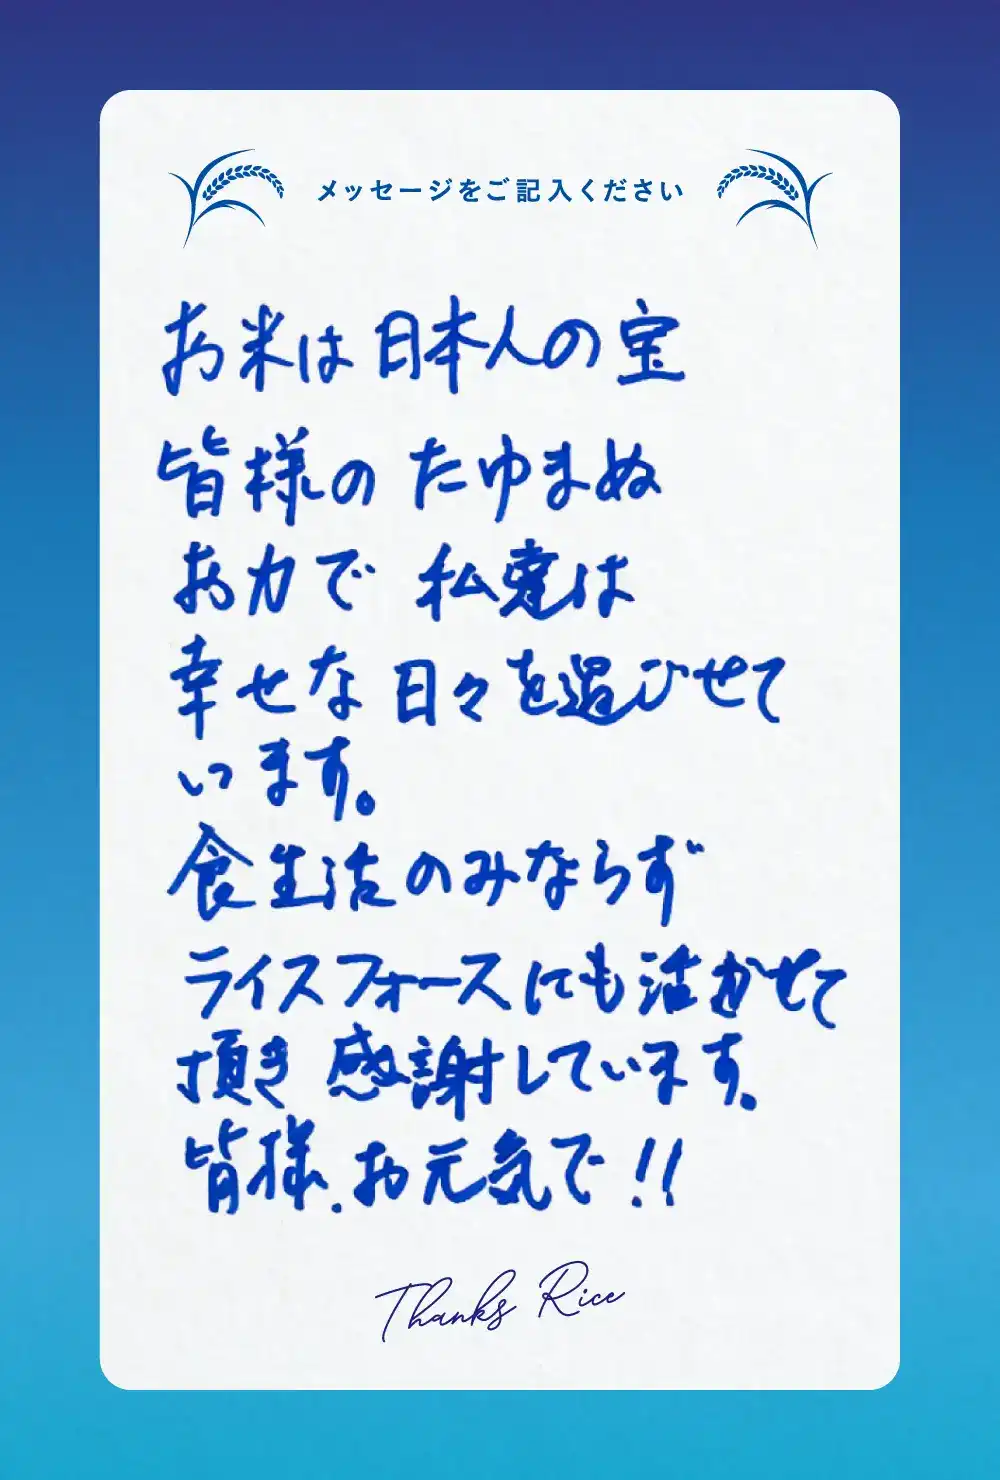 メッセージをご記入ください
お米は日本人の宝
皆様のたゆまぬ
お力で 私達は
幸せな日々を過びせて
います。
食生活のみならず
ライスフォースにも活かせて
頂き 感謝しています。
皆様.お元気で!!
Thanks Rice